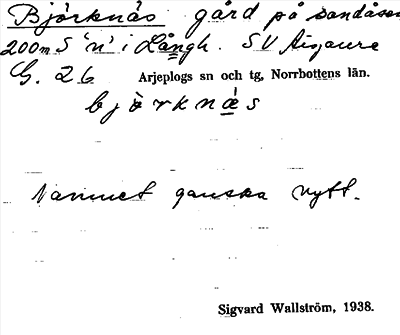 Björknäs gård på sandåsen
200m S 'n' i Långh. SV Aigaure
G. 26 Arjeplogs sn och tg, Norrbottens län.
bjö̀rknǽs
Namnet ganska nytt.
Sigvard Wallström, 1938.